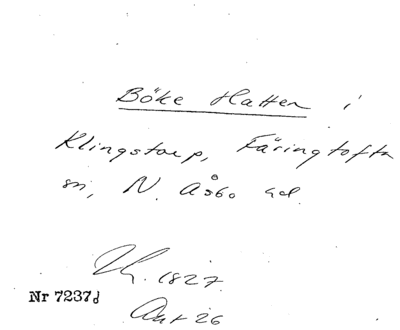 Böke Hatten i
Klingstorp, Färingtofta
sn, N. Åsbo hd.
1827
Nr 7237d
26